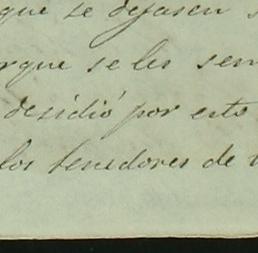 que se dejasen
rque se les sen
desidió por esto
los tenedores de